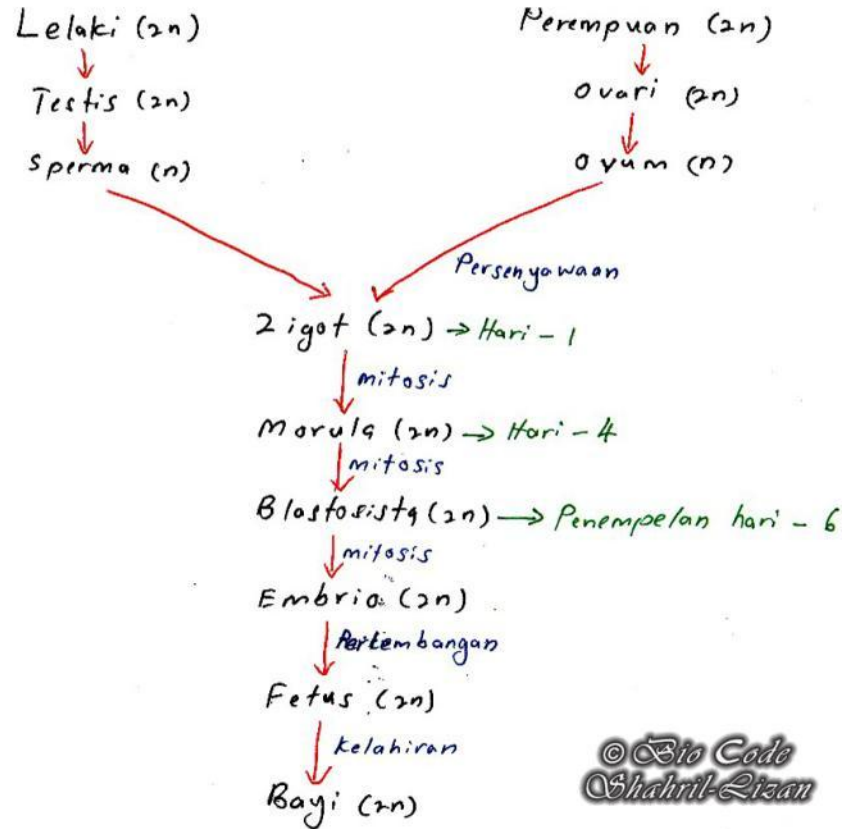 Lelaki (2n)
Perempuan (2n)
Testis (2n)
Ovari (2n)
Sperma (n)
Ovum (n)
Persenyawaan
Zigot (2n) → Hari - 1
mitosis
Morula (2n) → Hari - 4
mitosis
Blastosista (2n) → Penempelan hari - 6
mitosis
Embrio (2n)
Perkembangan
Fetus (2n)
Kelahiran
Bayi (2n)
© Bio Code
Shahril-Lizan